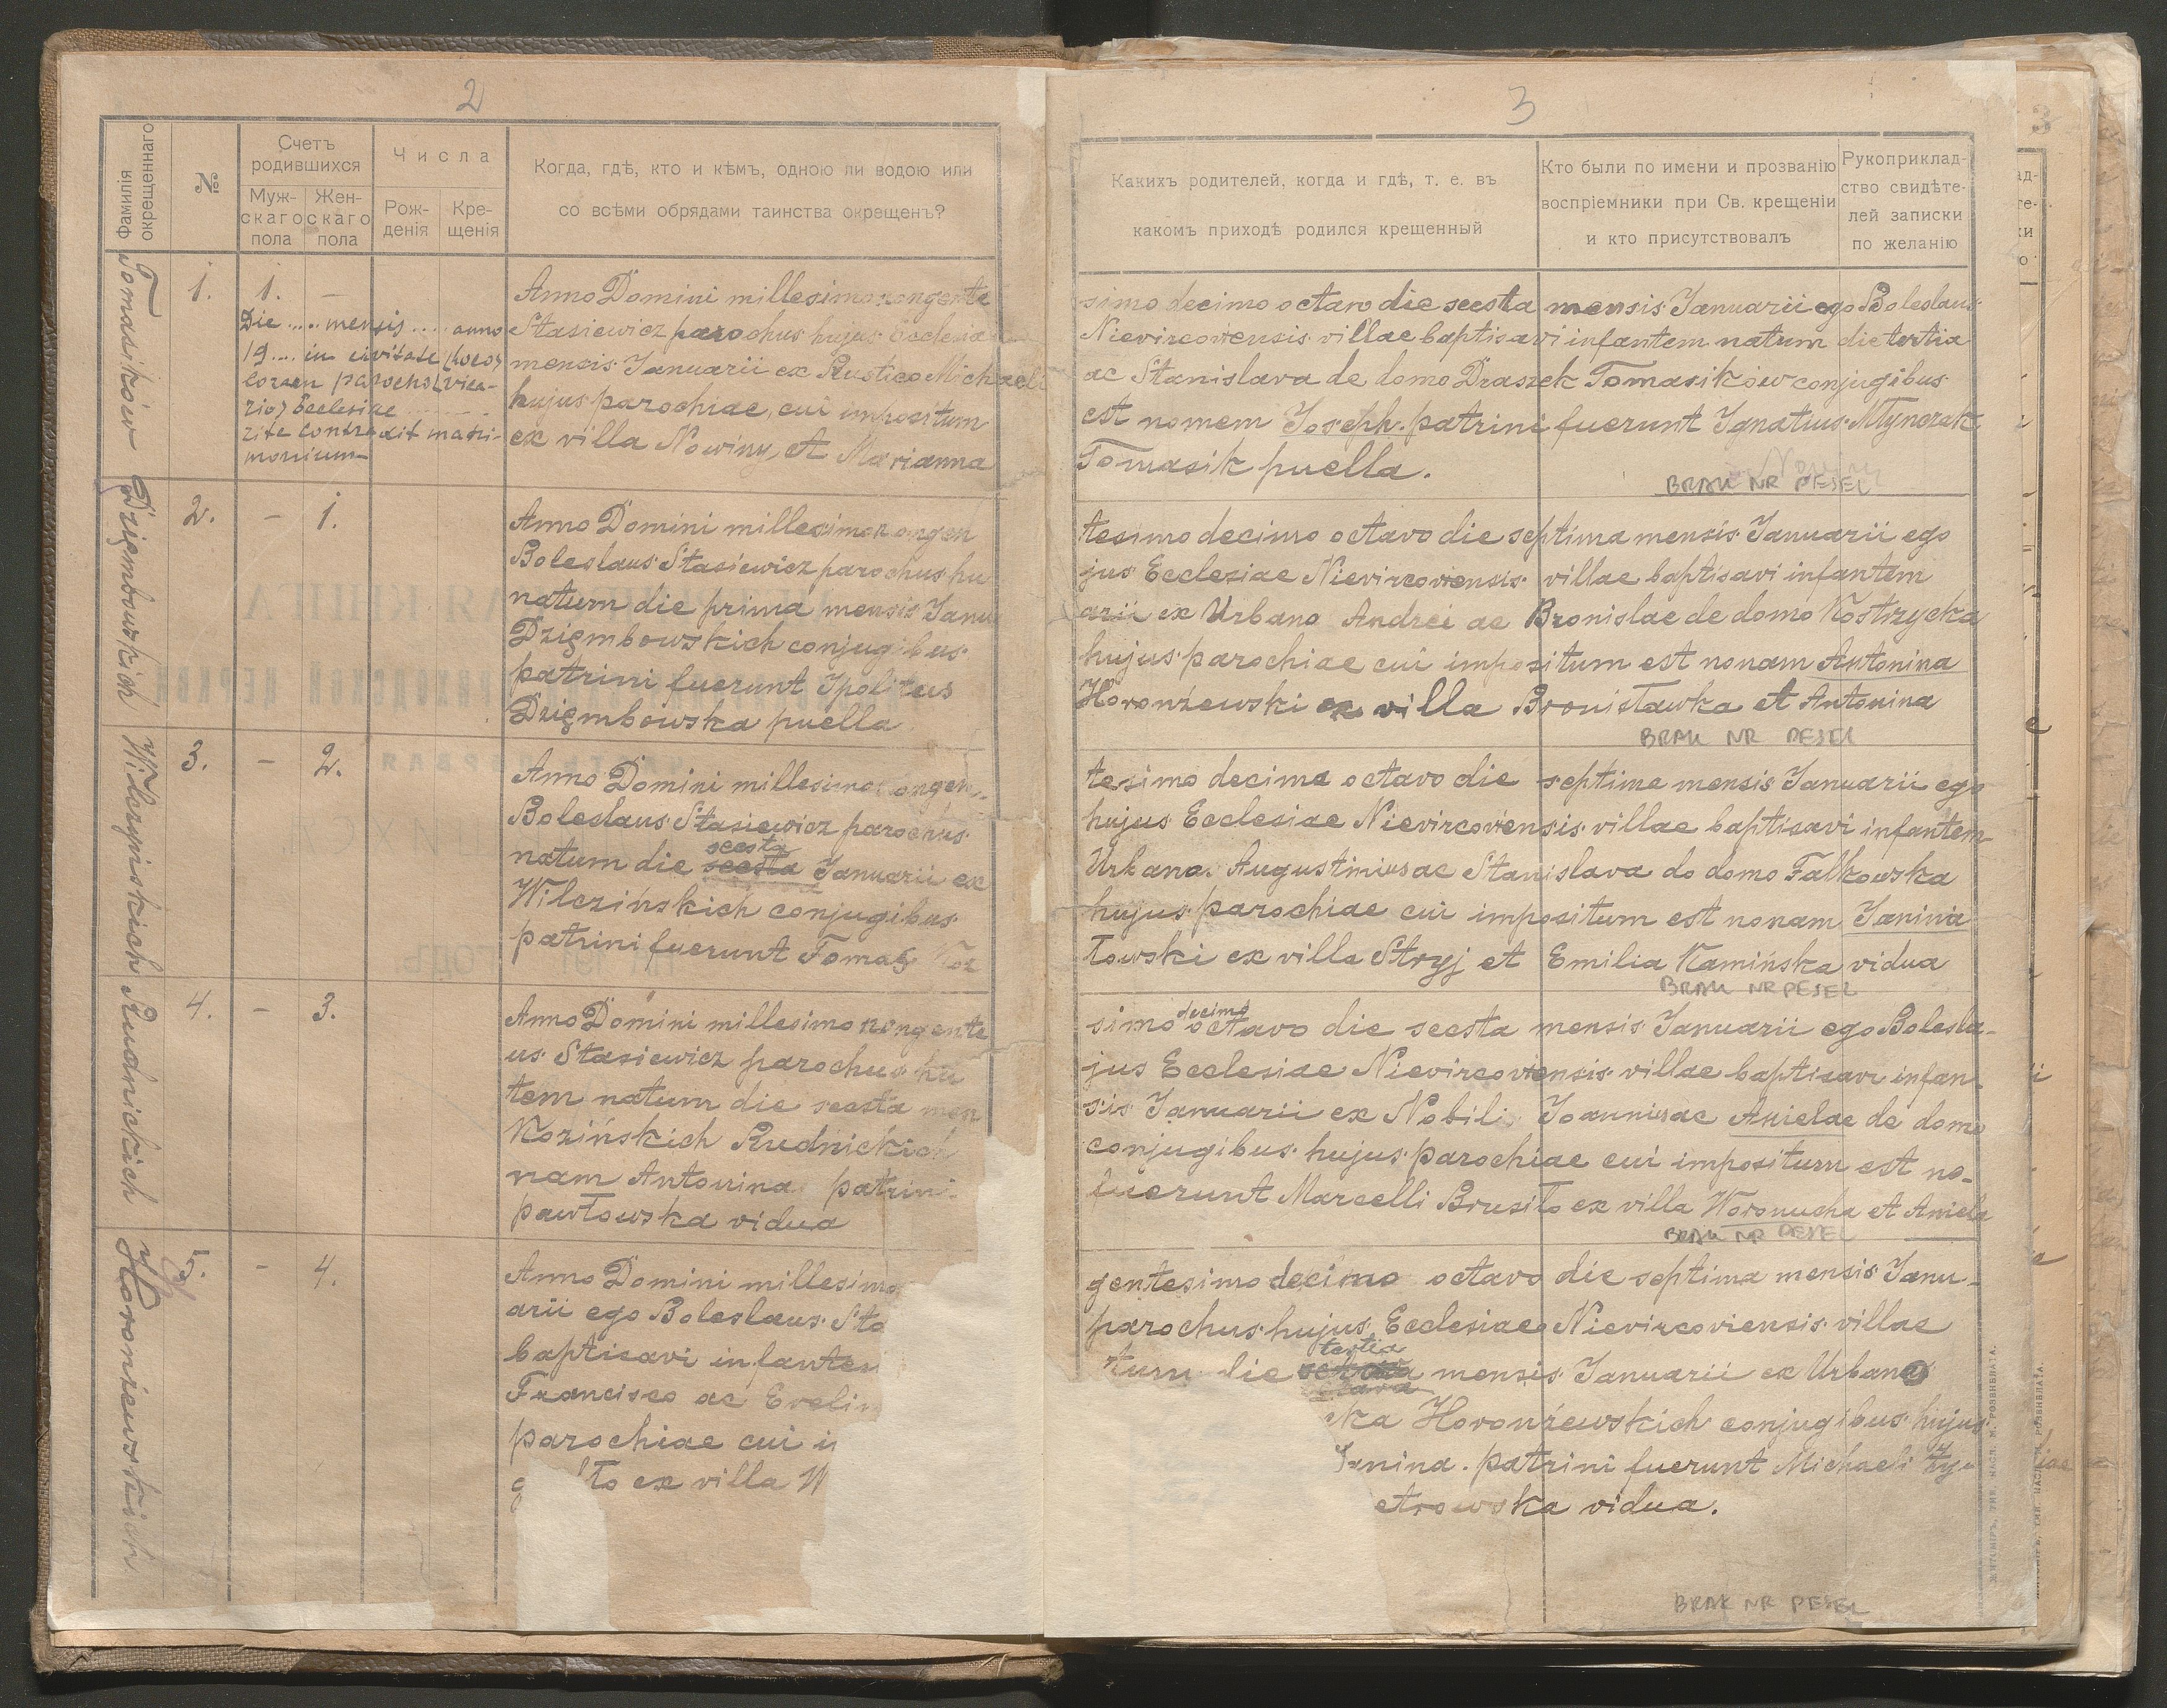 2
Фамилія окрещеннаго
№
Счетъ родившихся
Муж-
скаго
пола
Жен-
скаго
пола
Числа
Рож-
денія
Кре-
щенія
Когда, гдѣ, кто и кѣмъ, одною ли водою или
со всѣми обрядами таинства окрещенъ?
Tomasików
1.
1.
—
Die ..... mensis ..... anno
19 .... in civitate (loco)
coram parocho (vica-
rio) Ecclesiae
rite contraxit matri-
monium
Anno Domini millesimo nongente
Stasiewicz parochus hujus Ecclesiae
mensis Januarii ex Rustico Michaeli
hujus parochiae, cui impositum
ex villa Nowiny, et Marianna
Dzięmbowskich
2.
–
1.
Anno Domini millesimo nongen
Boleslaus Stasiewicz parochus hu
natum die prima mensis Janu
Dzięmbowskich conjugibus
patrini fuerunt Ipolitus
Dzięmbowska puella
Wilczyńskich
3.
–
2.
Anno Domini millesimo nongen-
Boleslaus Stasiewicz parochus
secsta
natum die secsta Januarii ex
Wilczińskich conjugibus
patrini fuerunt Tomas Koz
Rudnickich
4.
–
3.
Anno Domini millesimo nongente
us Stasiewicz parochus hu
tem natum die secsta men
Kozińskich Rudnickich
nam Antonina patrini
pawłowska vidua
Horoniewskich
5.
–
4.
Anno Domini millesimo
arii ego Boleslaus Sta
baptisavi infantem
Francisco ac Evelin
parochiae cui i
ex villa W
3
Какихъ родителей, когда и гдѣ, т. е. въ
какомъ приходѣ родился крещенный
Кто были по имени и прозванію
воспріемники при Св. крещеніи
и кто присутствовалъ
Рукоприклад-
ство свидѣте-
лей записки
по желанію
simo decimo octavo die secsta mensis Januarii ego Boleslaus
Nievircoviensis villae baptisavi infantem natum die tertia
ac Stanislava de domo Draszek Tomasików conjugibus
est nomem Joseph. patrini fuerunt Ignatius Młynczak
Tomasik puella.
Nowiny
BRAK NR PESEL
tesimo decimo octavo die septima mensis Januarii ego
jus Ecclesiae Nievircoviensis villae baptisavi infantem
arii ex Urbano Andrei ac Bronislae de domo Kostrzycka
hujus parochiae cui impositum est nonam Antonina
Horonżewski ex villa Bronisławka et Antonina
BRAK NR PESEL
tesimo decima octavo die septima mensis Januarii ego
hujus Ecclesiae Nievircoviensis villae baptisavi infantem
Urbano. Augustinius ac Stanislava do domo Falkowska
hujus parochiae cui impositum est nonam Janinia
łowski ex villa Stryj et Emilia Kamińska vidua
BRAK NR PESEL
decimo
simo octavo die secsta mensis Januarii ego Bolesla-
jus Ecclesiae Nievircoviensis villae baptisavi infan-
sis Januarii ex Nobili Joannis ac Anielae de domo
conjugibus hujus parochiae cui impositum est no-
fuerunt Marcelli Brusiło ex villa Woronucha et Aniela
BRAK NR PESEL
gentesimo decimo octavo die septima mensis Janu-
parochus hujus Ecclesiae Nievircoviensis villae
tertia
tum die mensis Januarii ex Urbano
ska Horonżewskich conjugibus hujus
Janina. patrini fuerunt Michaeli
etrowska vidua.
BRAK NR PESEL